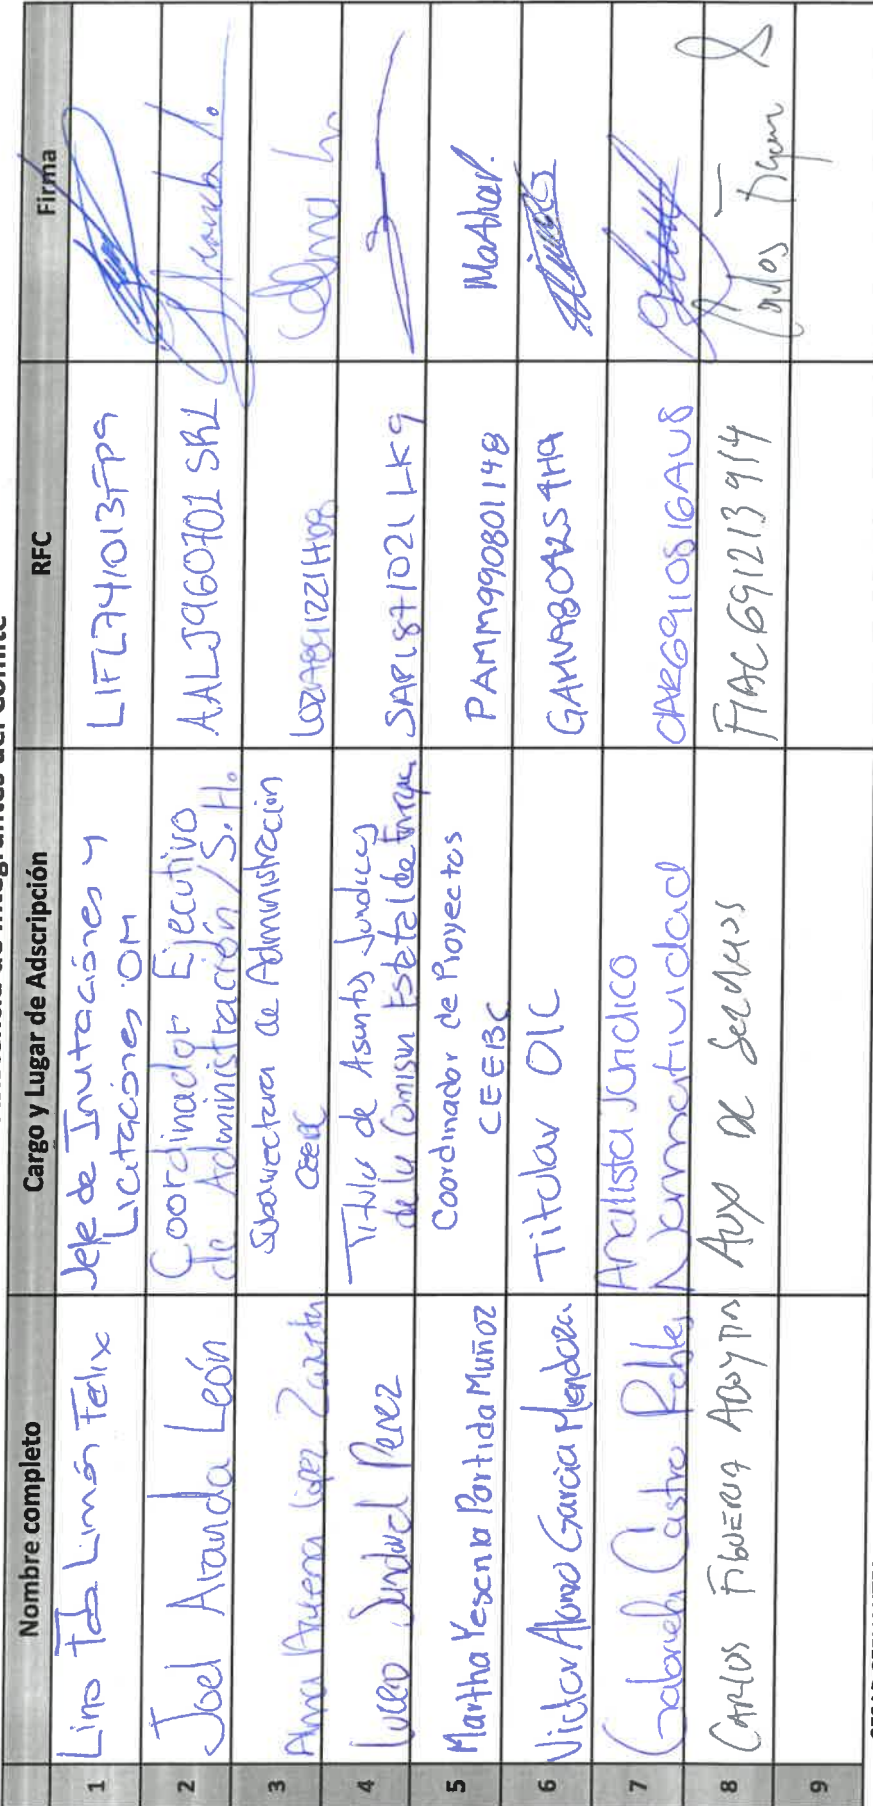 Nombre completo
Cargo y Lugar de Adscripción
RFC
Firma
1
Lino Limón Felix
Jefe de Invitaciones y
Licitaciones OM
LIFL741013FP9
2
Joel Aranda León
Coordinador Ejecutivo
de Administración / S.H.
AALJ960701SRL
3
Lopez
Subdirectora de Administración
4
Perez
Titular de Asuntos Juridicos
de la Comision Estatal de Energia
SAPL871021LK9
5
Martha Yesenia Partida Muñoz
Coordinador de Proyectos
CEEBC
PAMM990801148
Martha P.
6
Victor Alonso Garcia Mendoza
Titular OIC
7
Gabriela Castro Robles
Analista Jurídico
Normatividad
CARG910816AU8
8
CARLOS FIGUEROA ABOYTIA
AUX DE SERVICIOS
FIAC691213914
Carlos
9